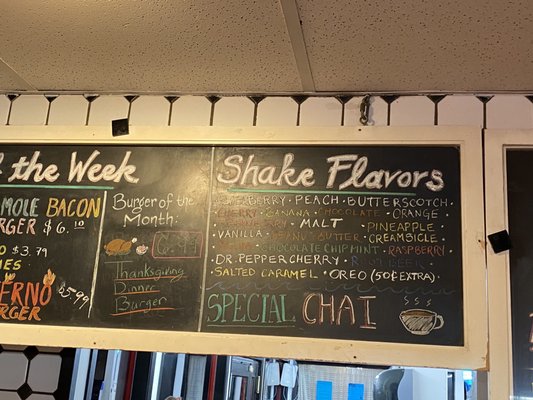 f the Week
MOLE BACON
RGER $6.10
O $3.79
IES
ERNO $5.99
RGER
Burger of the
Month:
6.99
Thanksgiving
Dinner
Burger
Shake Flavors
PEACH · BUTTERSCOTCH ·
CHERRY · BANANA · CHOCOLATE · ORANGE
MALT · PINEAPPLE
VANILLA · PEANUT BUTTER · CREAMSICLE
CHOCOLATE CHIP MINT · RASPBERRY
DR. PEPPER CHERRY ·
SALTED CARAMEL · OREO (50¢ EXTRA)
SPECIAL CHAI